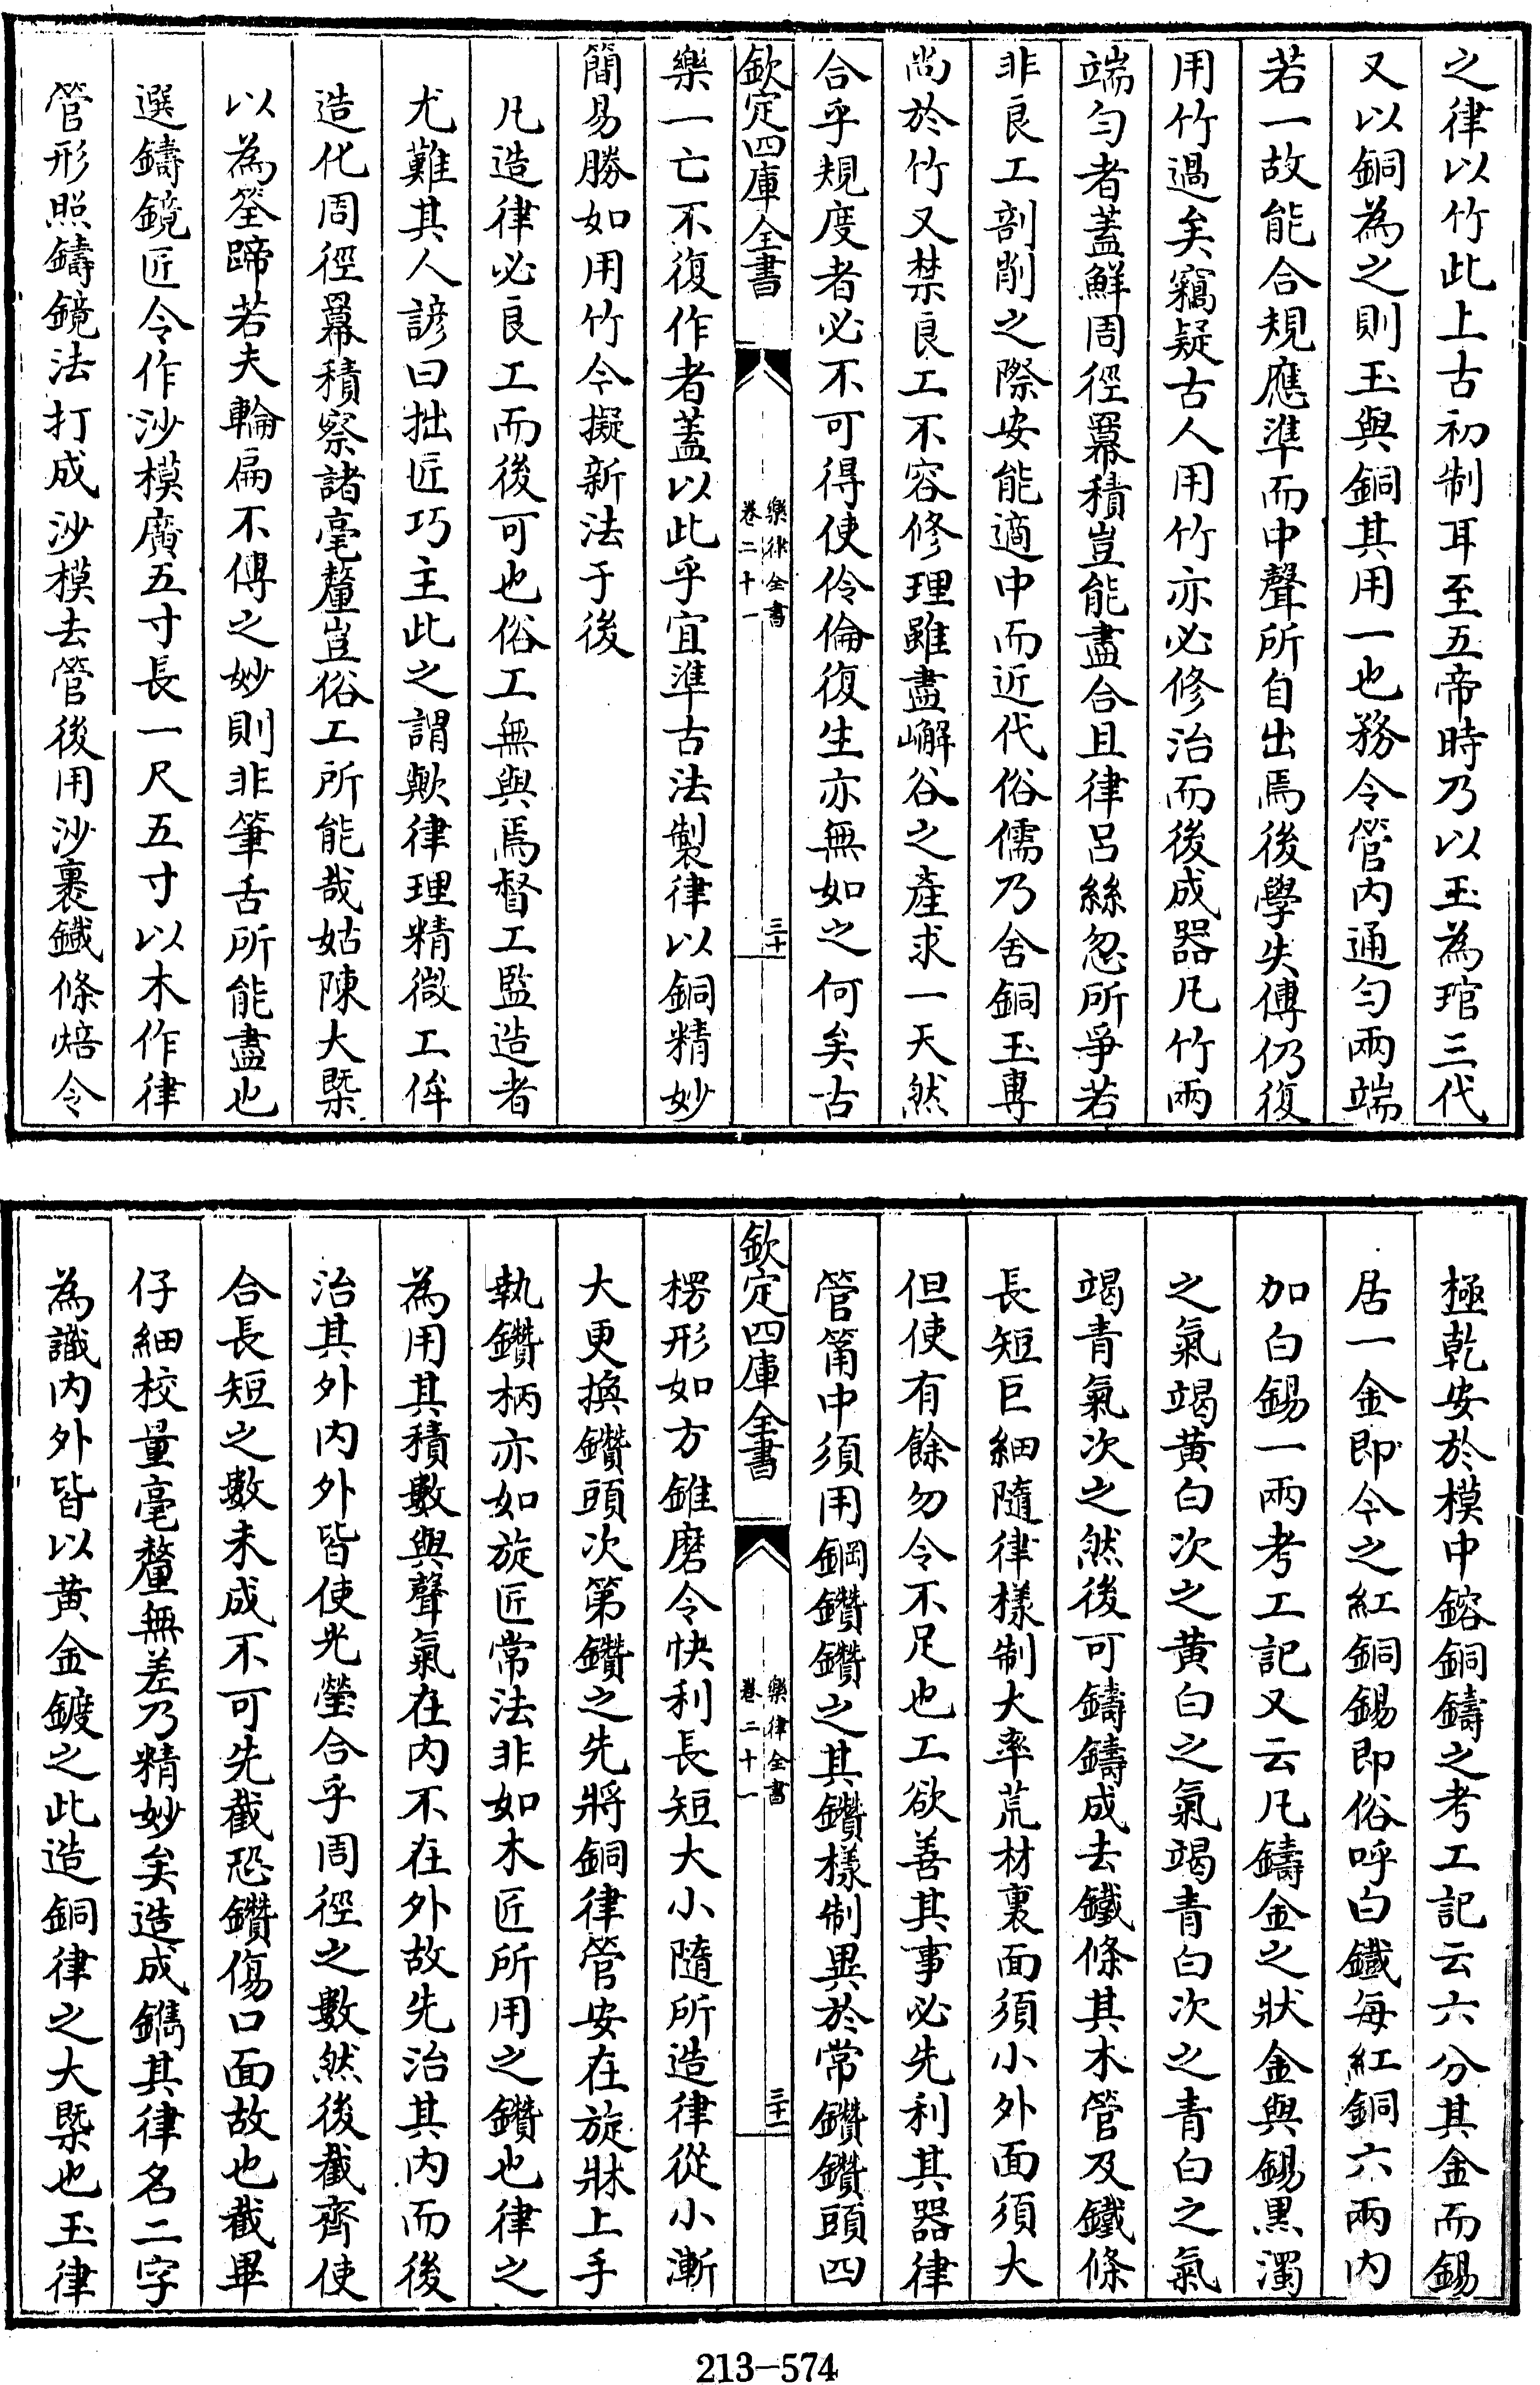 之律以竹此上古初制耳至五帝時乃以玉為琯三代
又以銅為之則玉與銅其用一也務令管内通勻兩端
若一故能合規應準而中聲所自出焉後學失傳仍復
用竹過矣竊疑古人用竹亦必修治而後成器凡竹兩
端勻者蓋鮮周徑羃積豈能盡合且律呂絲忽所爭若
非良工剖削之際安能適中而近代俗儒乃舍銅玉專
尚於竹又禁良工不容修理雖盡嶰谷之產求一天然
合乎規度者必不可得使伶倫復生亦無如之何矣古
欽定四庫全書
樂律全書
卷二十一
三十
樂一亡不復作者蓋以此乎宜準古法製律以銅精妙
簡易勝如用竹今擬新法于後
凡造律必良工而後可也俗工無與焉督工監造者
尤難其人諺曰拙匠巧主此之謂歟律理精微工侔
造化周徑羃積察諸毫釐豈俗工所能哉姑陳大槩
以為筌蹄若夫輪扁不傳之妙則非筆舌所能盡也
選鑄鏡匠令作沙模廣五寸長一尺五寸以木作律
管形照鑄鏡法打成沙模去管後用沙裹鐵條焙令
極乾安於模中鎔銅鑄之考工記云六分其金而錫
居一金即今之紅銅錫即俗呼白鐵每紅銅六兩内
加白錫一兩考工記又云凡鑄金之狀金與錫黑濁
之氣竭黃白次之黃白之氣竭青白次之青白之氣
竭青氣次之然後可鑄鑄成去鐵條其木管及鐵條
長短巨細隨律樣制大率荒材裏面須小外面須大
但使有餘勿令不足也工欲善其事必先利其器律
管筩中須用鋼鑽鑽之其鑽樣制異於常鑽鑽頭四
欽定四庫全書
樂律全書
卷二十一
三十一
楞形如方錐磨令快利長短大小隨所造律從小漸
大更換鑽頭次第鑽之先將銅律管安在旋牀上手
執鑽柄亦如旋匠常法非如木匠所用之鑽也律之
為用其積數與聲氣在内不在外故先治其内而後
治其外内外皆使光瑩合乎周徑之數然後截齊使
合長短之數未成不可先截恐鑽傷口面故也截畢
仔細校量毫釐無差乃精妙矣造成鐫其律名二字
為識内外皆以黃金鍍之此造銅律之大槩也玉律
213-574